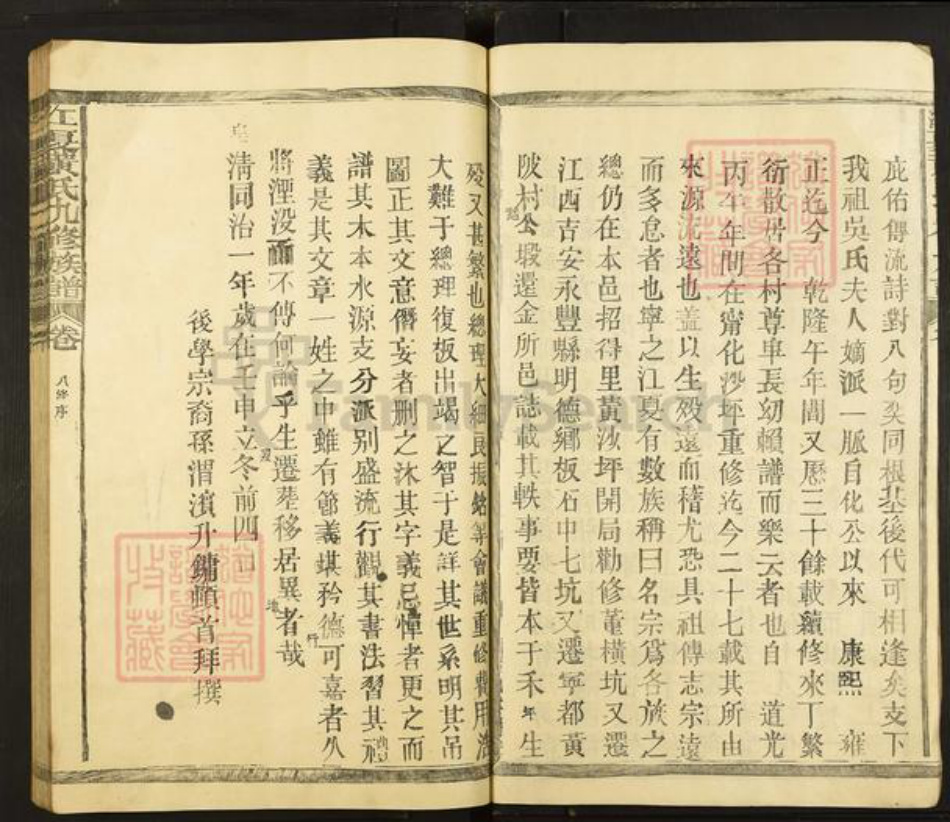 庇佑傳流詩對八句奕同根基後代可相逢矣支下
我祖吳氏夫人嫡派一脈自化公以來 康熙 雍
正迄今 乾隆午年間又歷三十餘載續修來丁繁
衍散居各村尊卑長幼賴譜而樂云者也自 道光
丙午年間在甯化沙坪重修迄今二十七載其所由
來源流遠也蓋以生歿遠而稽尤恐具祖傳志宗遠
而多怠者也寧之江夏有數族稱曰名宗爲各族之
總仍在本邑招得里黃沙坪開局勸修董橫坑又遷
江西吉安永豐縣明德鄉板石中七坑又遷寧都黃
陂村公塅還金所邑誌載其軼事要皆本于禾年生
歿又甚繁也總理大細民振銘等會議重修費用浩
大難于總理復板出竭之智于是詳其世系明其吊
圖正其文意僭妄者删之沐其字義忌憚者更之而
譜其木本水源支分派别盛流行觀其書法習其禮
義是其文章一姓之中雖有節義堪矜德可嘉者久
將湮没而不傳何論乎生遷塟移居異者哉
皇清同治一年歲在壬申立冬前四日
後學宗裔孫渭濱升鏞頓首拜撰
江夏黃氏九修族譜 卷
八修序
FamilySearch